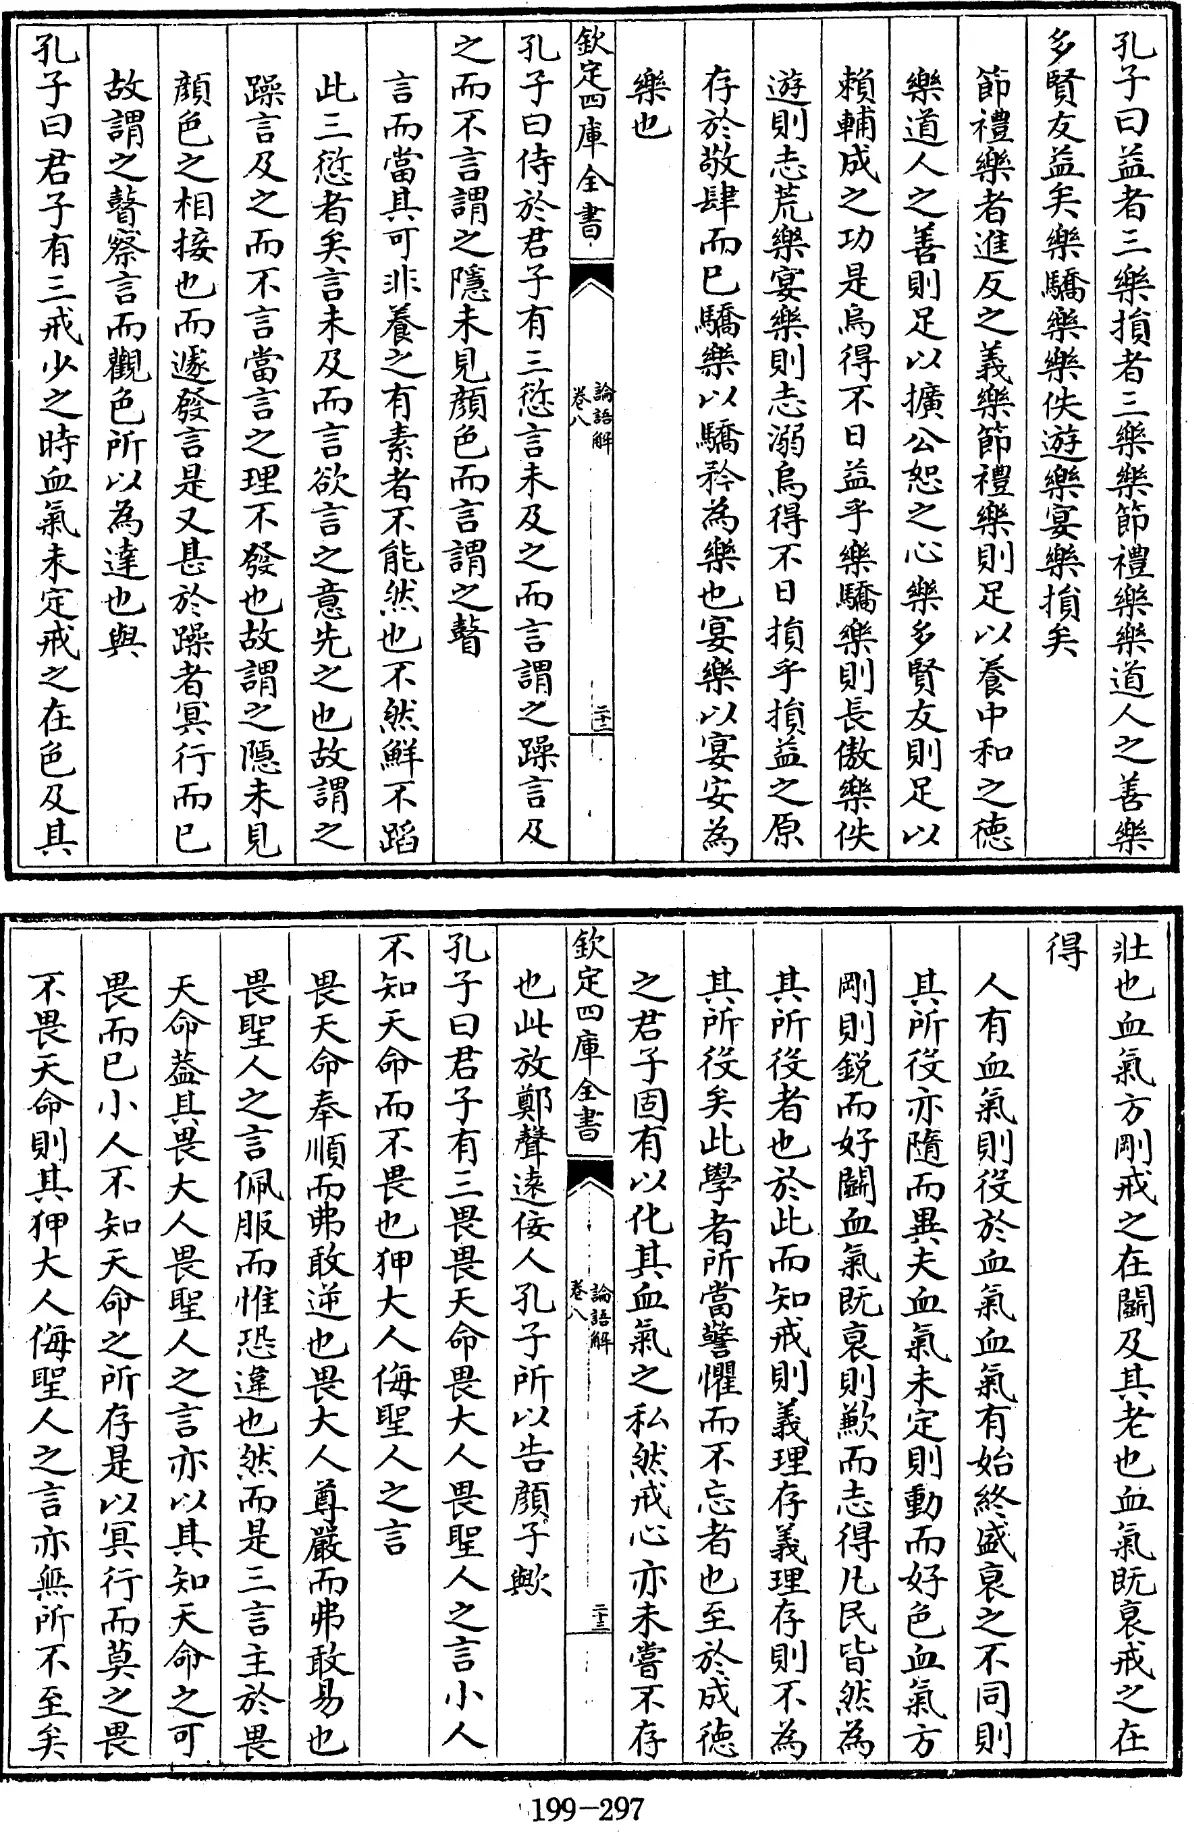 孔子曰益者三樂損者三樂樂節禮樂樂道人之善樂
多賢友益矣樂驕樂樂佚遊樂宴樂損矣
節禮樂者進反之義樂節禮樂則足以養中和之德
樂道人之善則足以擴公恕之心樂多賢友則足以
賴輔成之功是烏得不日益乎樂驕樂則長傲樂佚
遊則志荒樂宴樂則志溺烏得不日損乎損益之原
存於敬肆而已驕樂以驕矜為樂也宴樂以宴安為
樂也
欽定四庫全書
論語解
卷八
二十二
孔子曰侍於君子有三愆言未及之而言謂之躁言及
之而不言謂之隱未見顔色而言謂之瞽
言而當其可非養之有素者不能然也不然鮮不蹈
此三愆者矣言未及而言欲言之意先之也故謂之
躁言及之而不言當言之理不發也故謂之隱未見
顔色之相接也而遽發言是又甚於躁者冥行而已
故謂之瞽察言而觀色所以為達也與
孔子曰君子有三戒少之時血氣未定戒之在色及其
壯也血氣方剛戒之在鬭及其老也血氣既衰戒之在
得
人有血氣則役於血氣血氣有始終盛衰之不同則
其所役亦隨而異夫血氣未定則動而好色血氣方
剛則銳而好鬭血氣既衰則歉而志得凡民皆然為
其所役者也於此而知戒則義理存義理存則不為
其所役矣此學者所當警懼而不忘者也至於成德
之君子固有以化其血氣之私然戒心亦未嘗不存
欽定四庫全書
論語解
卷八
二十三
也此放鄭聲遠佞人孔子所以告顔子歟
孔子曰君子有三畏畏天命畏大人畏聖人之言小人
不知天命而不畏也狎大人侮聖人之言
畏天命奉順而弗敢逆也畏大人尊嚴而弗敢易也
畏聖人之言佩服而惟恐違也然而是三言主於畏
天命蓋其畏大人畏聖人之言亦以其知天命之可
畏而已小人不知天命之所存是以冥行而莫之畏
不畏天命則其狎大人侮聖人之言亦無所不至矣
199-297